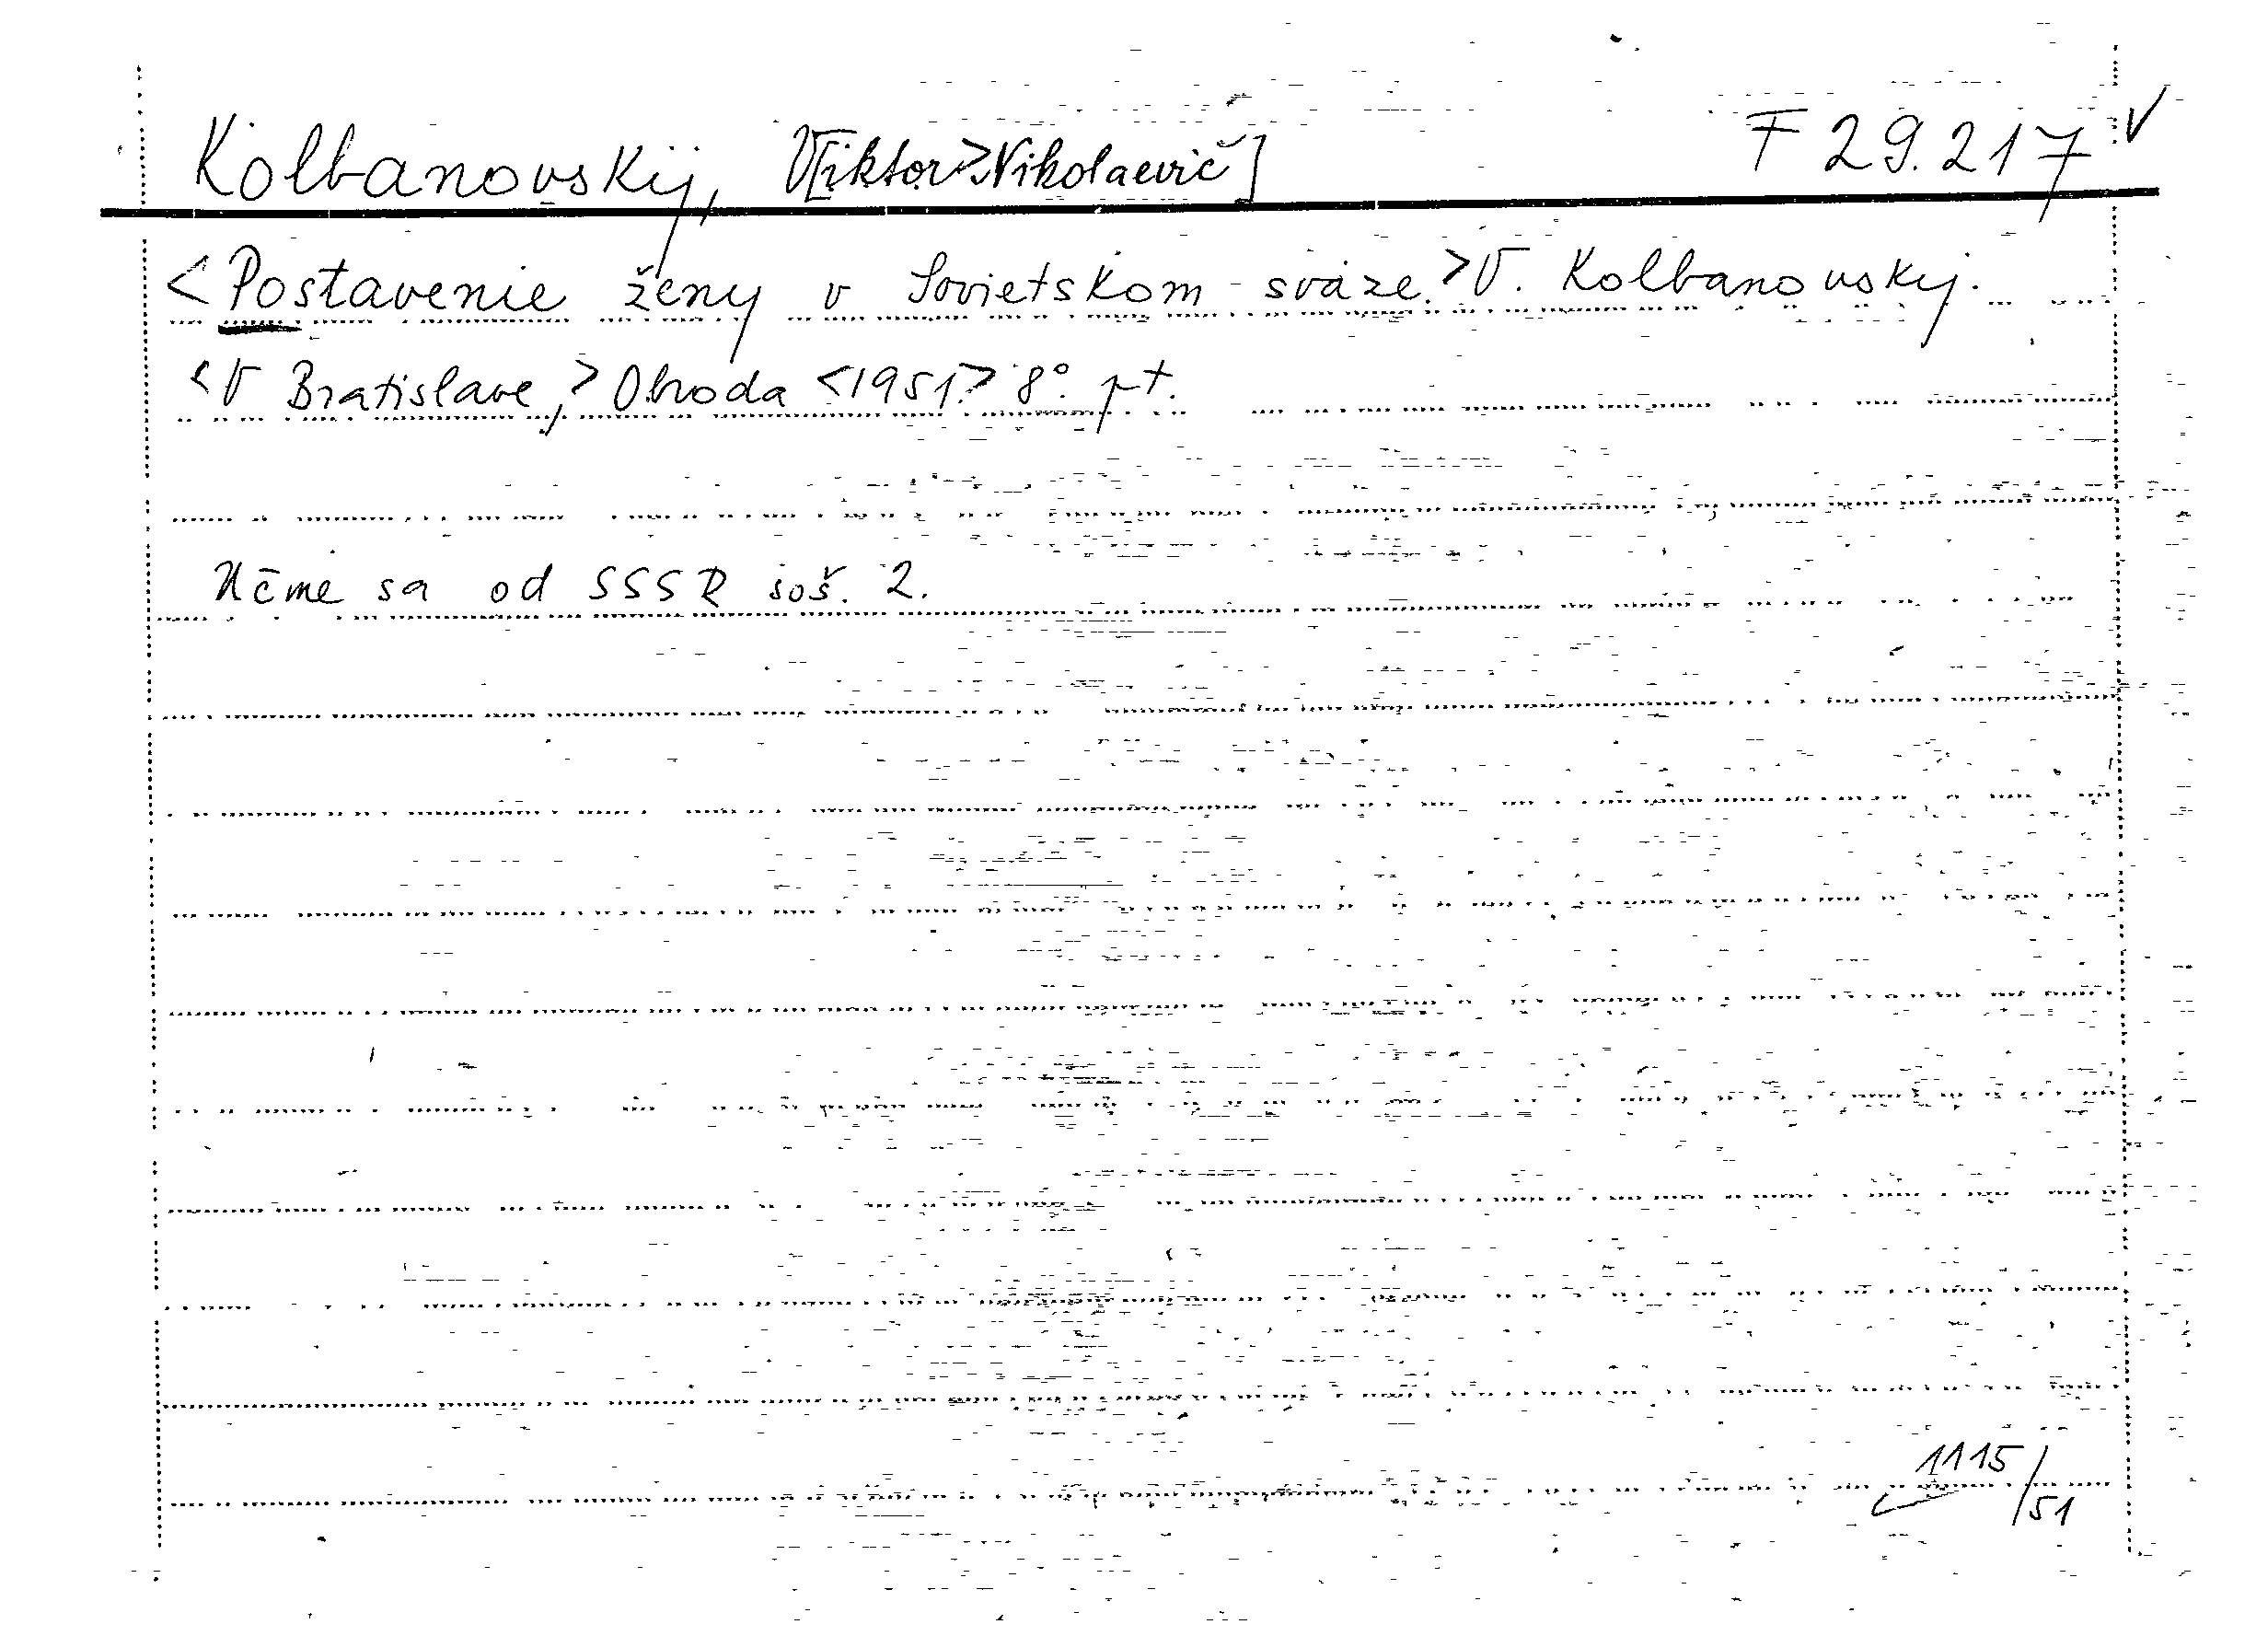 Kolbanovskij, V[iktor> Nikolaevič] F 29.217 √
<Postavenie ženy v Sovietskom sväze.> V. Kolbanovskij.
<V Bratislave,> Obroda <1951.> 8°. pt.
Učme sa od SSSR soš. 2.
1115/51